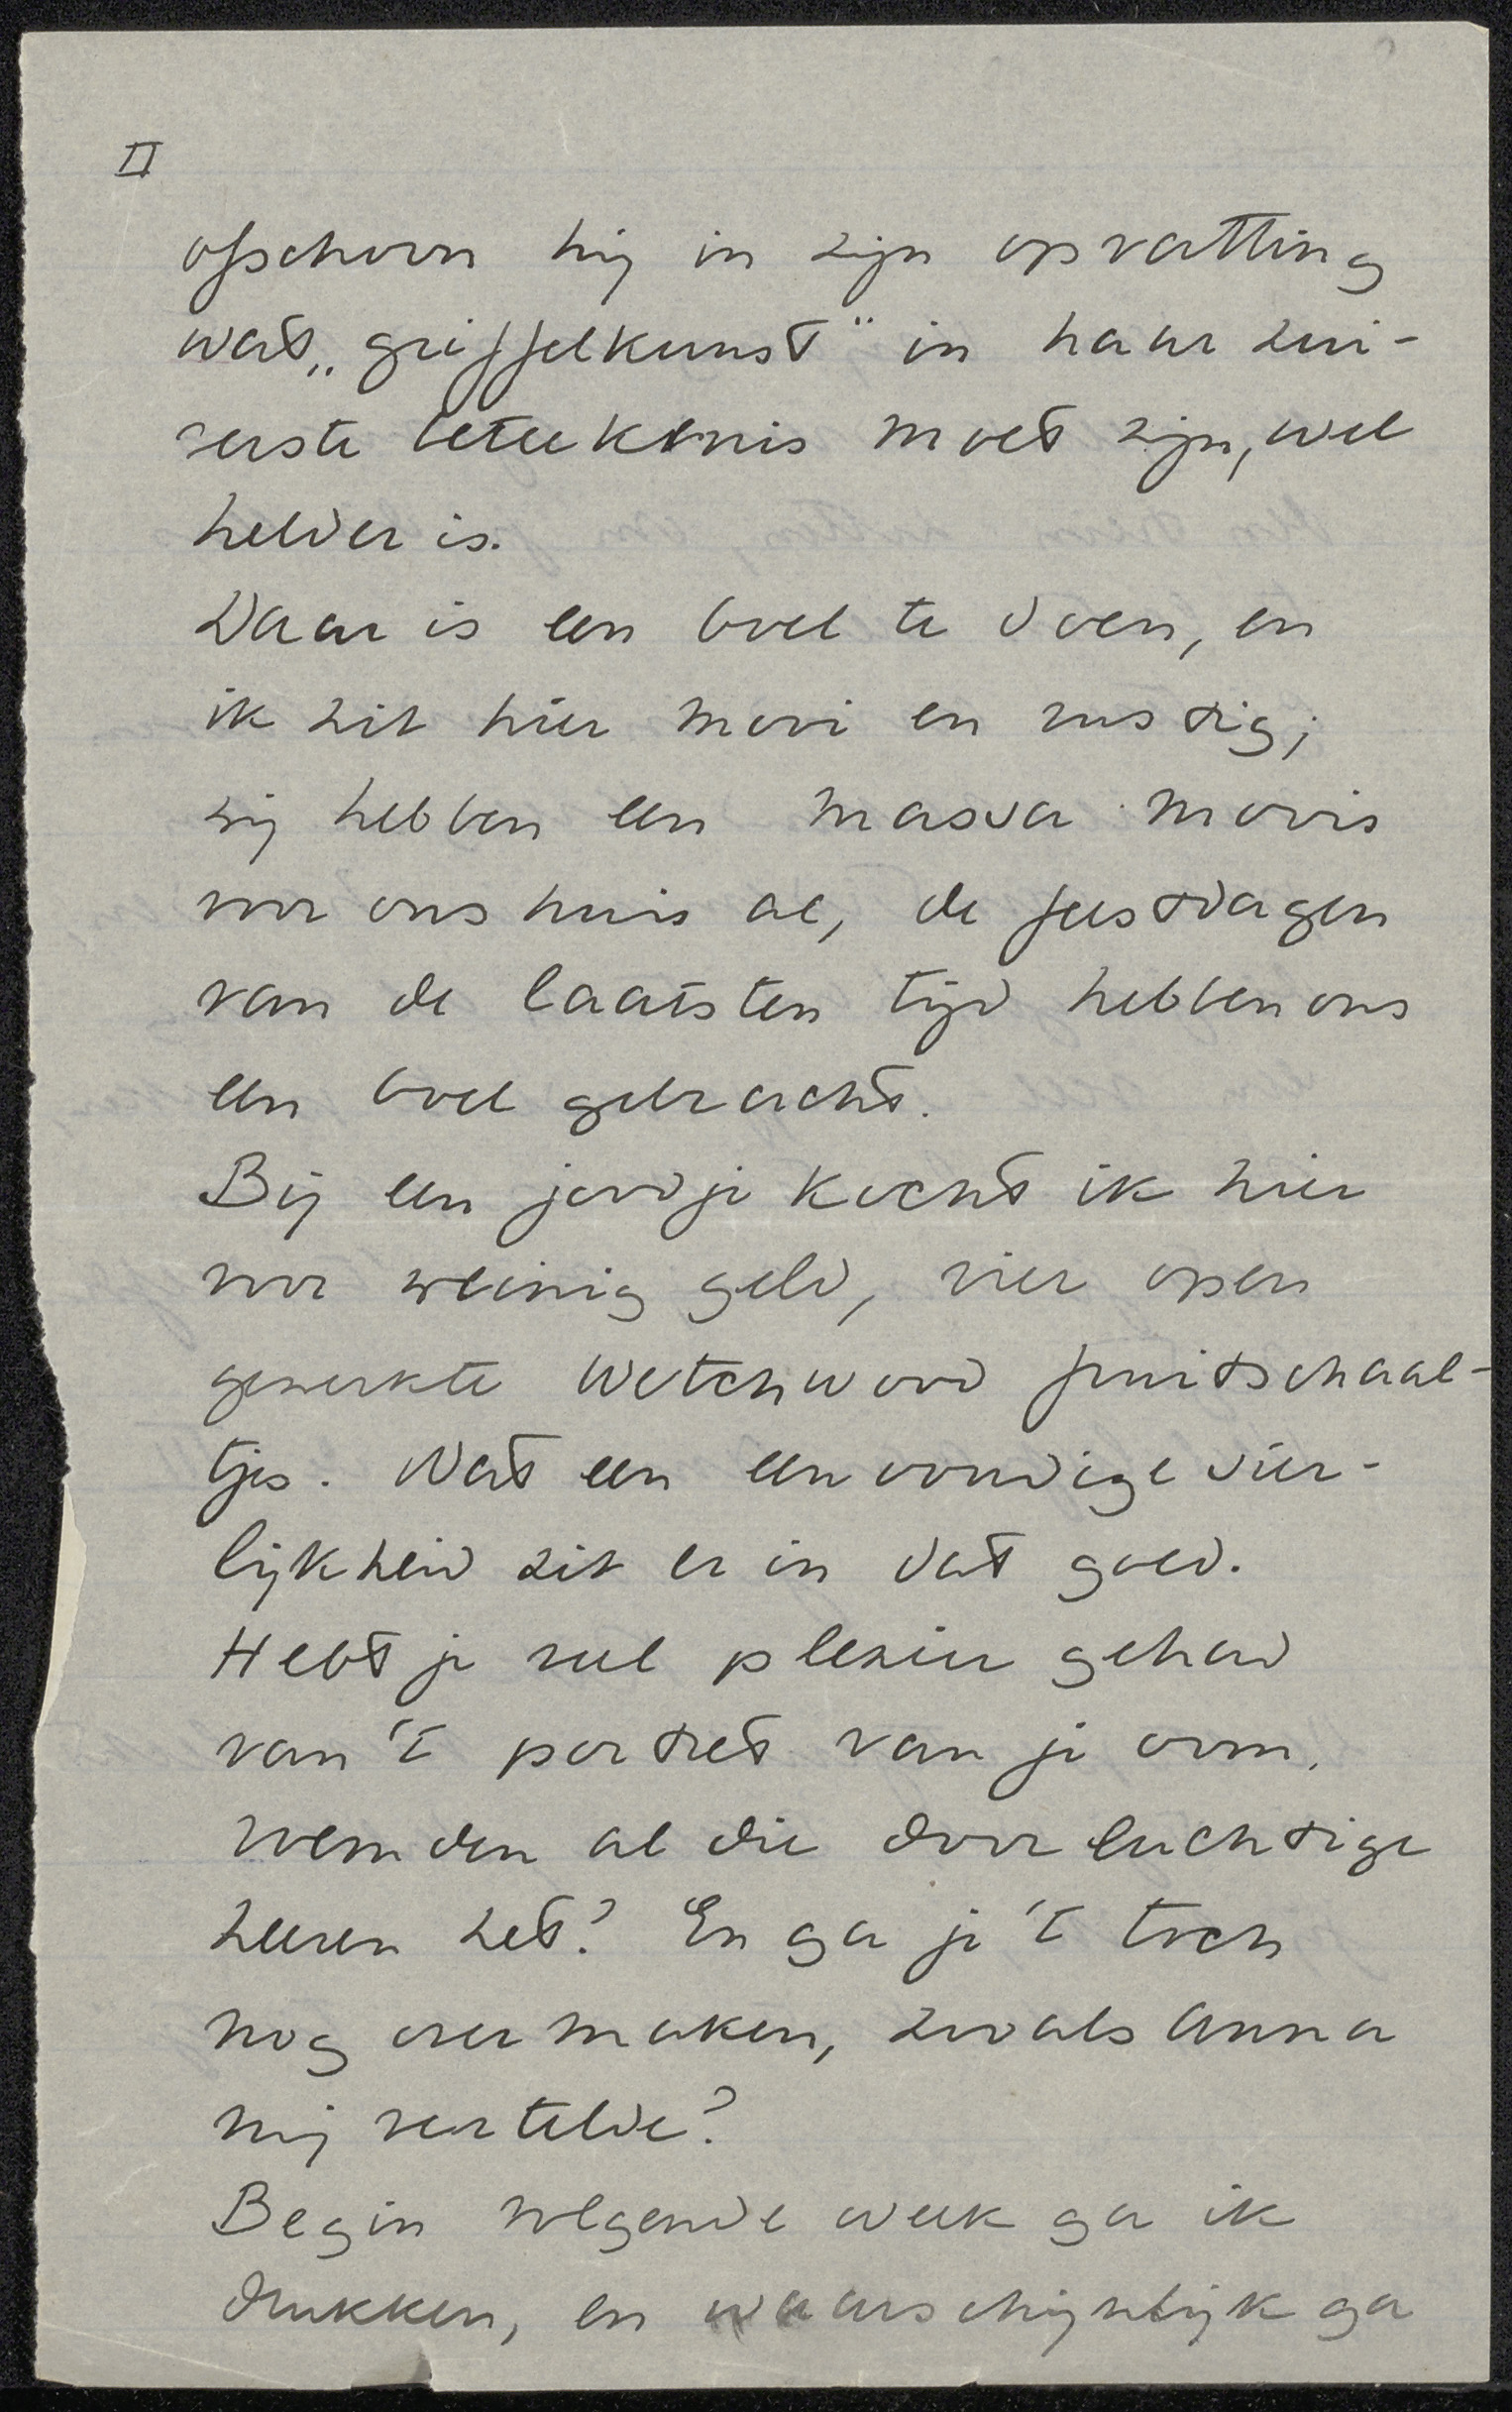 II
ofschoon hij in zijn opvatting
wat „griffelkunst" in haar zui-
verste beteekenis moet zijn, wel
helder is.
Daar is een boel te doen, en
ik zit hier mooi en rustig;
wij hebben een massa moois
voor ons huis al, de feestdagen
van de laatsten tijd hebben ons
een boel gebracht.
Bij een joodje kocht ik hier
voor weinig geld, vier open
gewerkte Wetchwood fruitschaal-
tjes. Wat een eenvoudige sier-
lijkheid zit er in dat goed.
Hebt je veel plezier gehad
van 't portret van je oom,
roemden al die doorluchtige
heeren het? En ga je 't toch
nog overmaken, zooals Anna
mij vertelde?
Begin volgende week ga ik
drukken, en waarschijnlijk ga